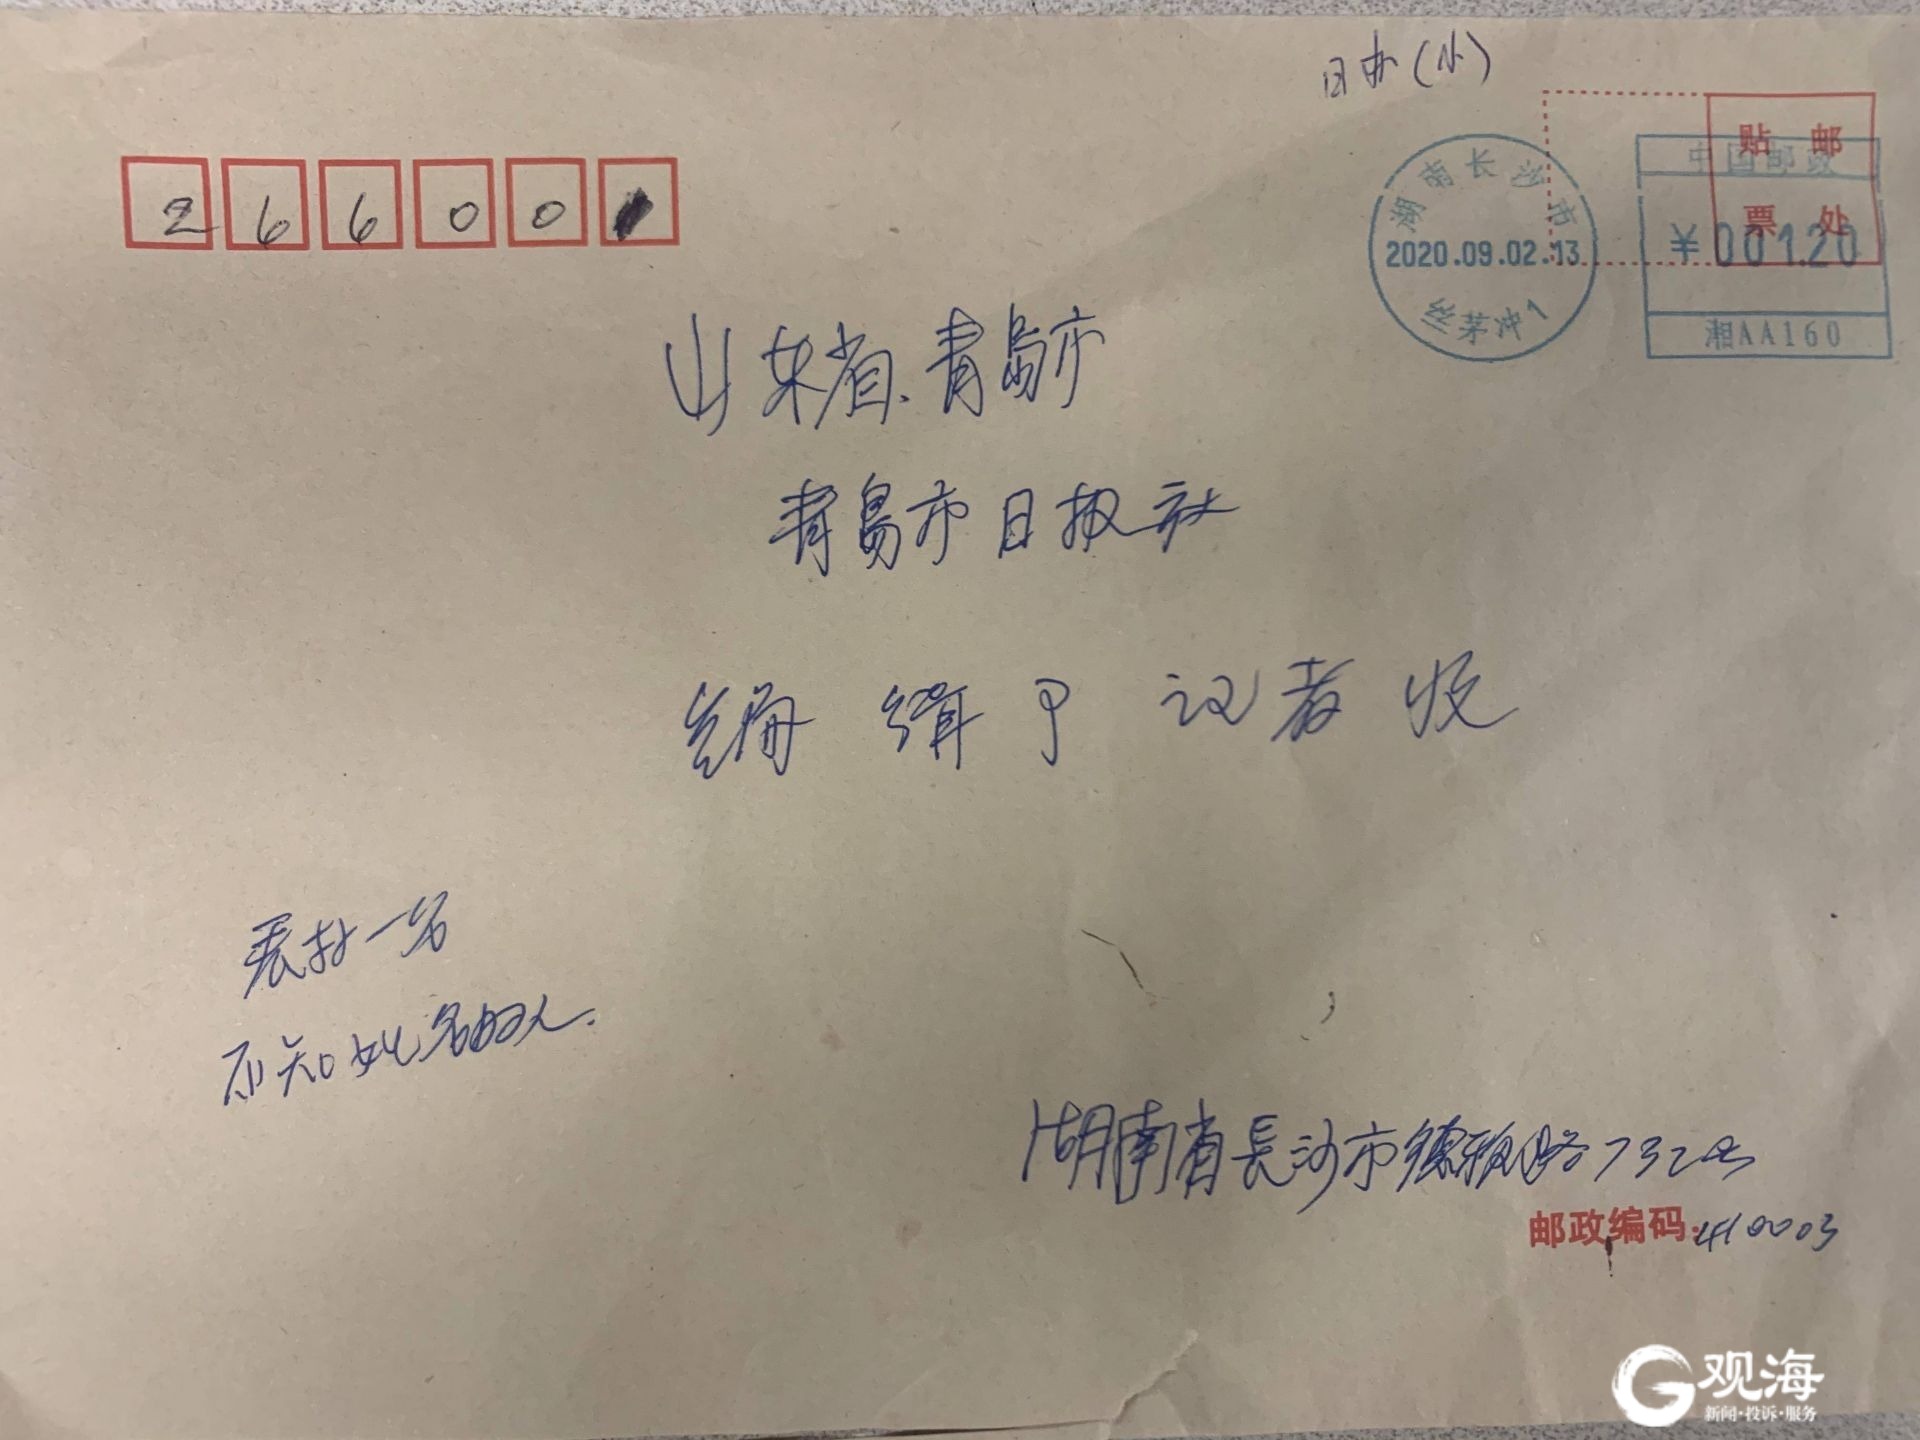 日办(小)
贴 邮
票 处
中国邮政
¥001.20
湘AA160
湖南长沙市
2020.09.02.13
丝茅冲1
26600
山东省.青岛市
青岛市日报社
编辑 记者 收
表扬一名
不知姓名的人.
湖南省長沙市德雅路732号
邮政编码:410003
观海
新闻·投诉·服务